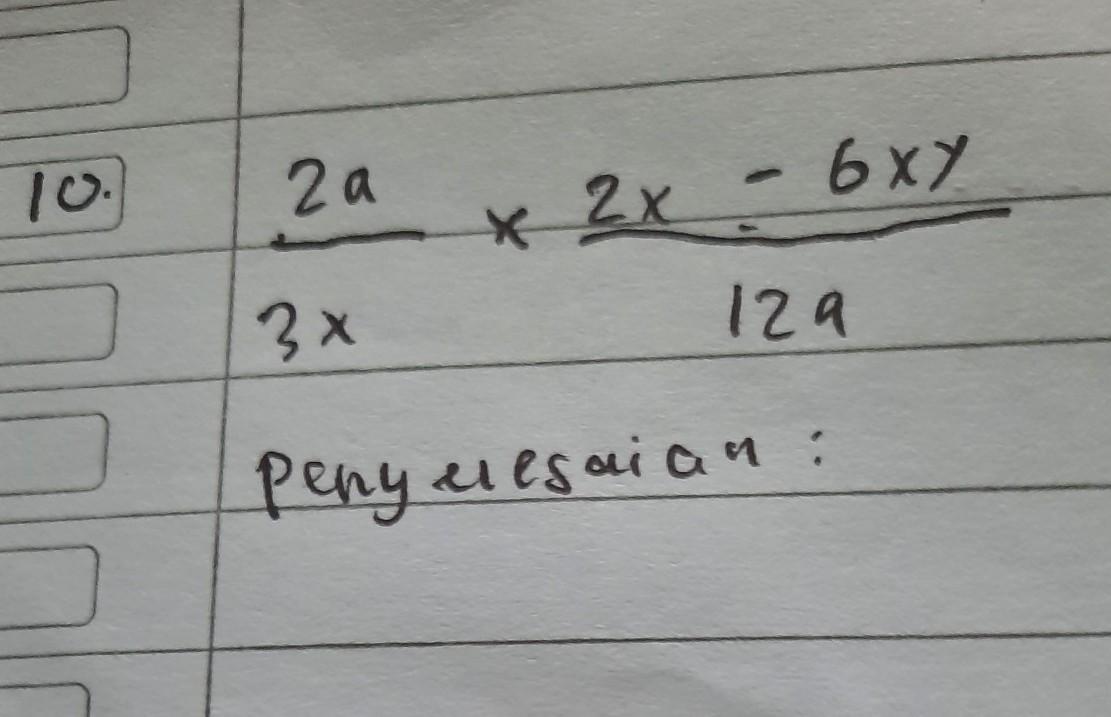 10. 2a/3x × 2x - 6xy/12a
Penyelesaian :